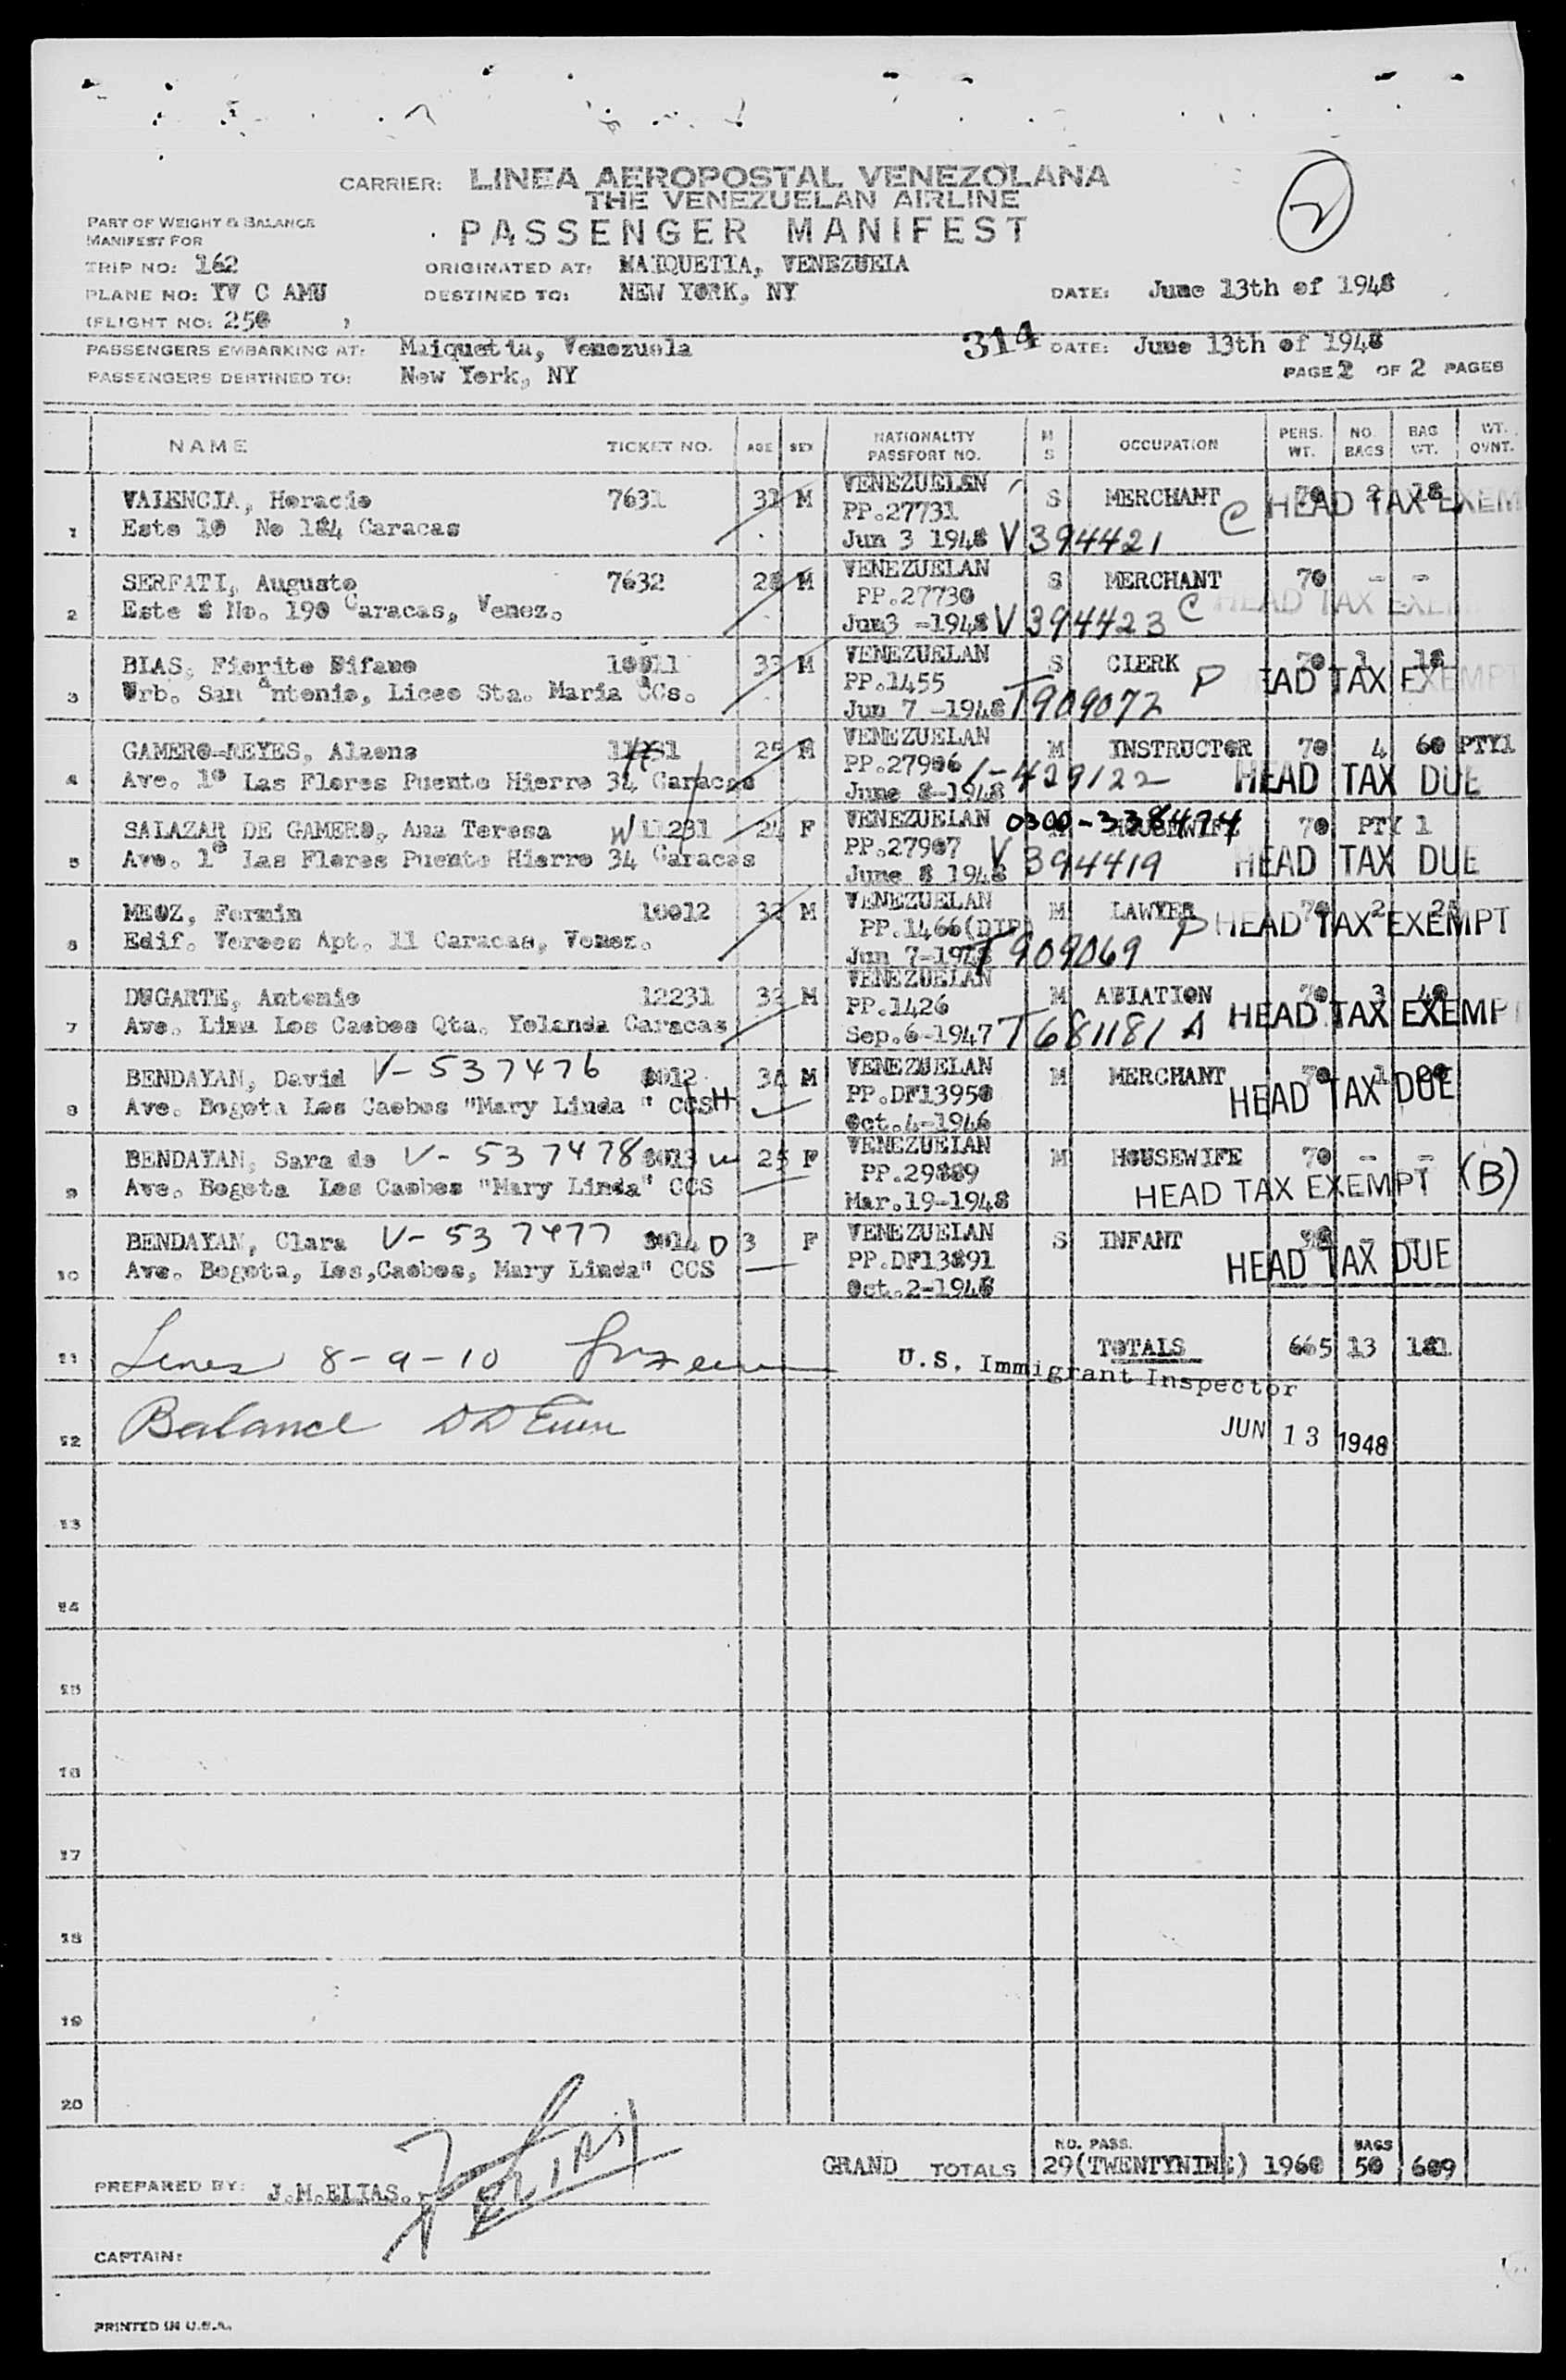 CARRIER: LINEA AEROPOSTAL VENEZOLANA
THE VENEZUELAN AIRLINE
2
PART OF WEIGHT & BALANCE
MANIFEST FOR
PASSENGER MANIFEST
TRIP NO: 162 ORIGINATED AT: MAIQUETIA, VENEZUELA
PLANE NO: YV C AMU DESTINED TO: NEW YORK, NY DATE: June 13th of 1948
(FLIGHT NO: 250 )
PASSENGERS EMBARKING AT: Maiquetia, Venezuela 314 DATE: June 13th of 1948
PASSENGERS DESTINED TO: New York, NY PAGE 2 OF 2 PAGES
NAME TICKET NO. AGE SEX NATIONALITY PASSPORT NO. M S OCCUPATION PERS. WT. NO. BAGS BAG WT. WT. OVNT.
VALENCIA, Horacio 7631 31 M VENEZUELAN S MERCHANT 70 2 18
1 Este 10 No 184 Caracas PP.27731 C HEAD TAX EXEM
Jun 3 1948 V 394421
SERFATI, Augusto 7632 28 M VENEZUELAN S MERCHANT 70 - -
2 Este 8 No. 190 Caracas, Venez. PP.27730 C HEAD TAX EXEM
Jun3 -1948 V 394423
BIAS, Fiorito Sifano 10011 33 M VENEZUELAN S CLERK 70 1 18
3 Urb. San Antonio, Liceo Sta. Maria CCs. PP.1455 P EAD TAX EXEMPT
Jun 7 -1948 T909072
GAMERO-REYES, Alaens 25 M VENEZUELAN M INSTRUCTOR 70 4 60 PTY1
4 Ave. 1º Las Flores Puente Hierro 34 Caracas PP.27906 HEAD TAX DUE
June 8-1948 -429122
SALAZAR DE GAMERO, Ana Teresa W 11231 24 F VENEZUELAN 0300-338474 HOUSEWIFE 70 PTY 1
5 Ave. 1º Las Flores Puente Hierro 34 Caracas PP.27907 HEAD TAX DUE
June 8 1948 V 394419
MEOZ, Fermin 10012 32 M VENEZUELAN M LAWYER 70 2 25
6 Edif. Veroes Apt. 11 Caracas, Venez. PP.1466(DIP) P HEAD TAX EXEMPT
Jun 7-1948 T 909069
DUGARTE, Antonio 12231 32 M VENEZUELAN M ABIATION 70 3 40
7 Ave. Lima Los Caobos Qta. Yolanda Caracas PP.1426 HEAD TAX EXEMP
Sep.6-1947 T 681181 A
BENDAYAN, David V-537476 8012 34 M VENEZUELAN M MERCHANT 70 1
8 Ave. Bogota Los Caobos "Mary Linda " CCS H PP.DF13950 HEAD TAX DUE
Oct.4-1946
BENDAYAN, Sara de V-537478 8013 w 25 F VENEZUELAN M HOUSEWIFE 70 - -
9 Ave. Bogota Los Caobos "Mary Linda" CCS PP.29889 HEAD TAX EXEMPT (B)
Mar.19-1948
BENDAYAN, Clara V-537477 8014 D 3 F VENEZUELAN S INFANT - -
10 Ave. Bogota, Los,Caobos, Mary Linda" CCS PP.DF13891 HEAD TAX DUE
Oct.2-1946
11 Lines 8-9-10 TOTALS 665 13 181
U.S. Immigrant Inspector
12 Balance
JUN 13 1948
13
14
15
16
17
18
19
20
GRAND TOTALS NO. PASS. 29(TWENTYNINE) 1960 BAGS 50 609
PREPARED BY: J.M.ELIAS.
CAPTAIN:
PRINTED IN U.S.A.